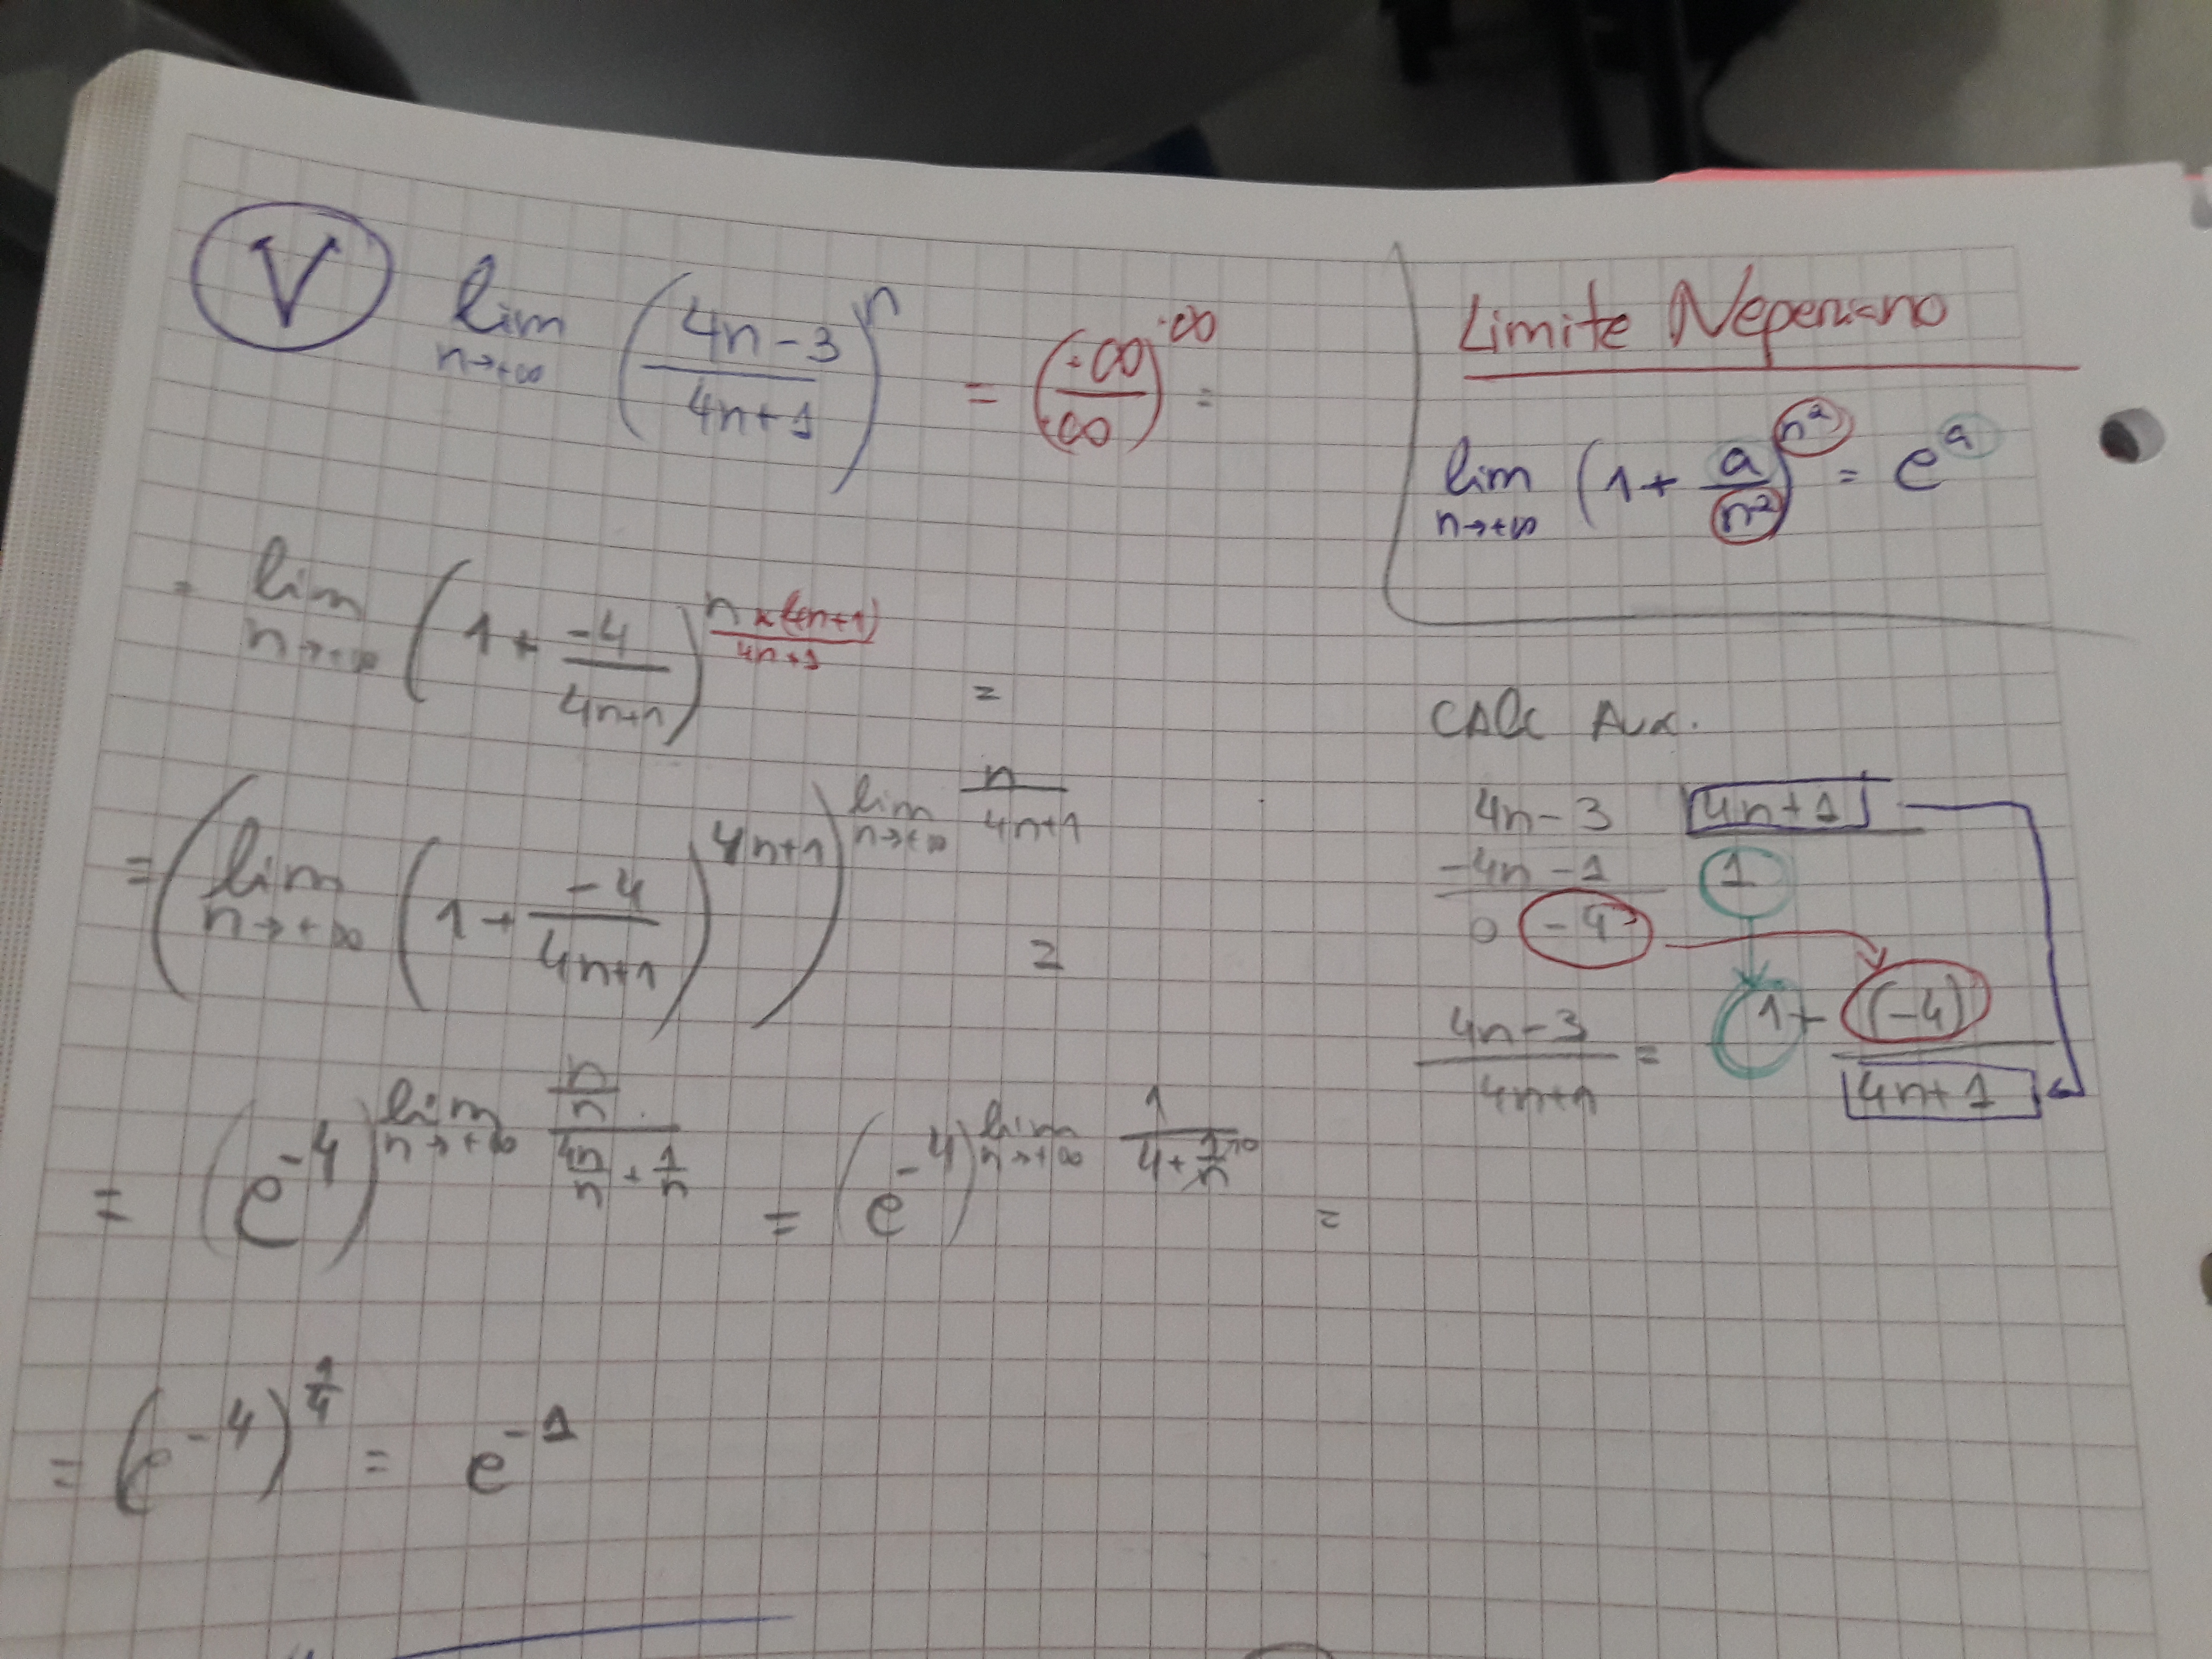 V lim n→+∞ ((4n-3)/(4n+1))^n = (+∞/+∞)^+∞ =
= lim n→+∞ (1 + -4/(4n+1))^(n×(4n+1)/(4n+1)) =
= (lim n→+∞ (1 + -4/(4n+1))^(4n+1))^(lim n→+∞ n/(4n+1)) =
= (e^-4)^(lim n→+∞ (n/n)/(4n/n + 1/n)) = (e^-4)^(lim n→+∞ 1/(4 + 1/n→0)) =
= (e^-4)^(1/4) = e^-1
Limite Neperiano
lim n→+∞ (1 + a/n²)^(n²) = e^a
CALC Aux.
4n-3 4n+1
-4n-1 1
0 -4
(4n-3)/(4n+1) = 1 + (-4)/(4n+1)